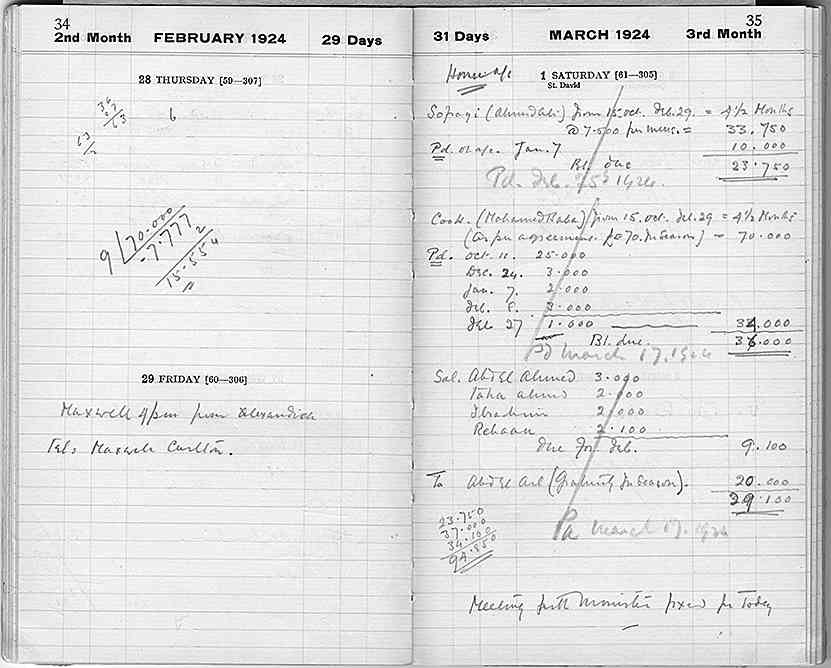 34
2nd Month FEBRUARY 1924 29 Days
28 THURSDAY [59—307]
6
9 70.000
7.777
2
15.554
29 FRIDAY [60—306]
Maxwell 4/pm from Alexandria
Tel: Maxwell Carlton.
35
31 Days MARCH 1924 3rd Month
House a/c
1 SATURDAY [61—305]
St. David
(Ahmed Ali) from 15. Oct. Feb. 29. = 4 1/2 Months
@ 7.500 per mens. = 33.750
Pd. on a/c. Jan. 7 10.000
Bl. due 23.750
Pd. Feb. 1924.
Cook. (Mohamed Baba) from 15. Oct. Feb. 29 = 4 1/2 Months
(as per agreement. In Season) = 70.000
Pd. Oct. 11. 25.000
Dec. 24. 3.000
Jan. 7. 2.000
Feb. 8. 3.000
Feb. 27 1.000 34.000
Bl. due. 36.000
Pd March 17. 1924
Sal. Abd El Ahmed 3.000
Taha Ahmed 2.000
Ibrahim 2.000
Rehaan 2.100
due for Feb. 9.100
To Abd El Aal (Gratuity In Season). 20.000
29.100
23.750
37.000
34.100
94.850
Pd March 17. 1924
Meeting with Minister fixed for Today